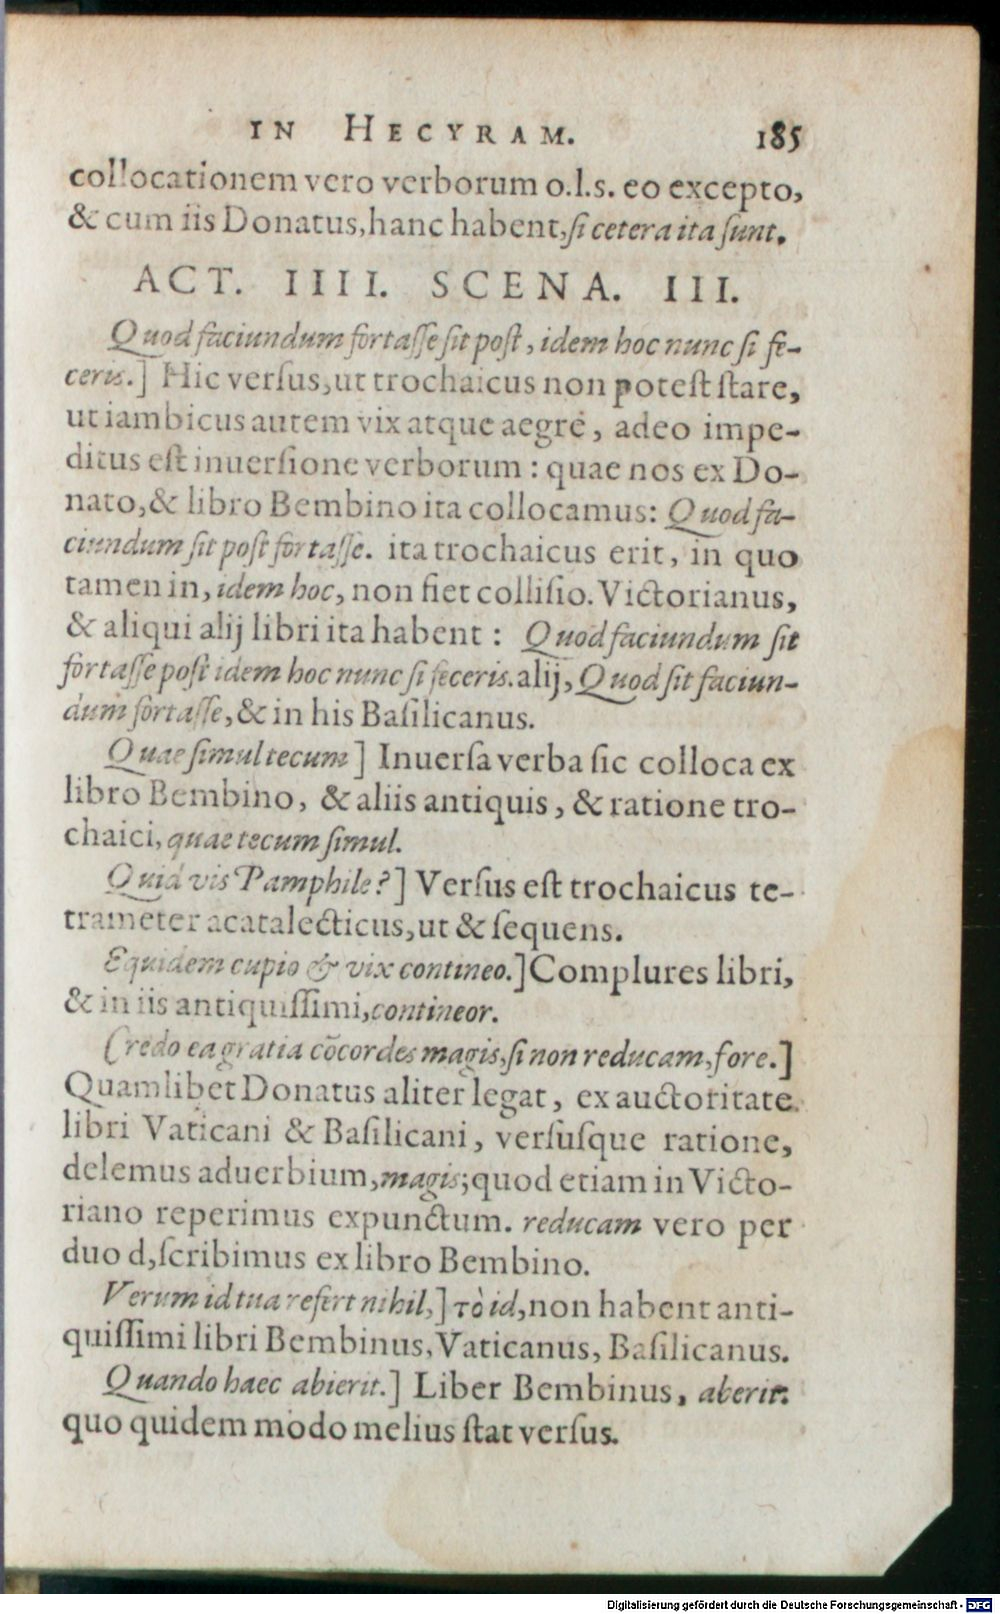 IN HECYRAM. 185
collocationem vero verborum o.l.s. eo excepto,
& cum iis Donatus, hanc habent, si cetera ita sunt.
ACT. IIII. SCENA. III.
Quod faciundum fortasse sit post, idem hoc nunc si fe-
ceris.] Hic versus, ut trochaicus non potest stare,
ut iambicus autem vix atque aegrè, adeo impe-
ditus est inuersione verborum: quae nos ex Do-
nato, & libro Bembino ita collocamus: Quod fa-
ciundum sit post fortasse. ita trochaicus erit, in quo
tamen in, idem hoc, non fiet collisio. Victorianus,
& aliqui alij libri ita habent: Quod faciundum sit
fortasse post idem hoc nunc si feceris. alij, Quod sit faciun-
dum fortasse, & in his Basilicanus.
Quae simul tecum] Inuersa verba sic colloca ex
libro Bembino, & aliis antiquis, & ratione tro-
chaici, quae tecum simul.
Quid vis Pamphile?] Versus est trochaicus te-
trameter acatalecticus, ut & sequens.
Equidem cupio & vix contineo.] Complures libri,
& in iis antiquissimi, contineor.
Credo ea gratia cōcordes magis, si non reducam, fore.]
Quamlibet Donatus aliter legat, ex auctoritate
libri Vaticani & Basilicani, versusque ratione,
delemus aduerbium, magis; quod etiam in Victo-
riano reperimus expunctum. reducam vero per
duo d, scribimus ex libro Bembino.
Verum id tua refert nihil,] τὸ id, non habent anti-
quissimi libri Bembinus, Vaticanus, Basilicanus.
Quando haec abierit.] Liber Bembinus, aberit:
quo quidem modo melius stat versus.
Digitalisierung gefördert durch die Deutsche Forschungsgemeinschaft - DFG